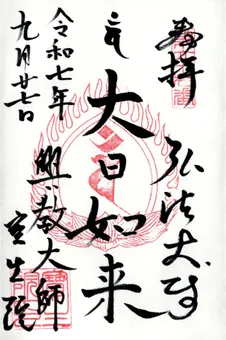 奉拝
弘法大師
大日如来
興教大師
宝生院
令和七年
九月廿七日